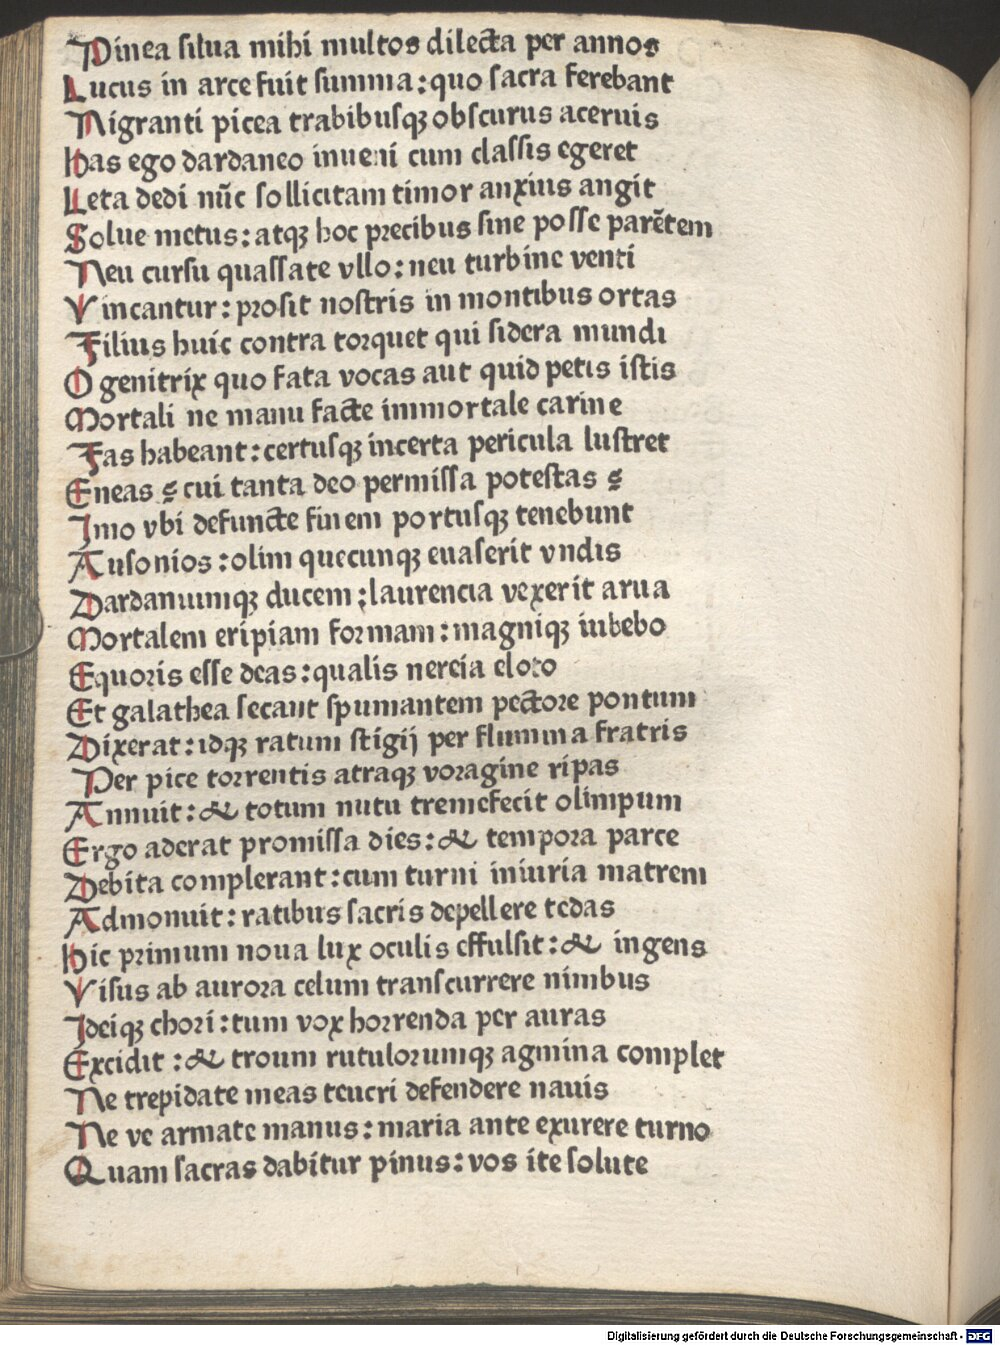 Pinea silua mihi multos dilecta per annos
Lucus in arce fuit summa: quo sacra ferebant
Nigranti picea trabibusqꝫ obscurus aceruis
Has ego dardaneo inueni cum classis egeret
Leta dedi nūc sollicitam timor anxius angit
Solue metus: atqꝫ hoc precibus sine posse parētem
Neu cursu quassate vllo: neu turbine venti
Vincantur: prosit nostris in montibus ortas
Filius huic contra torquet qui sidera mundi
O genitrix quo fata vocas aut quid petis istis
Mortali ne manu facte immortale carine
Fas habeant: certusqꝫ incerta pericula lustret
Eneas ꝯ cui tanta deo permissa potestas ꝯ
Imo vbi defuncte finem portusqꝫ tenebunt
Ausonios: olim quecunqꝫ euaserit vndis
Dardaniumqꝫ ducem; laurencia vexerit arua
Mortalem eripiam formam: magniqꝫ iubebo
Equoris esse deas: qualis nereia eloto
Et galathea secant spumantem pectore pontum
Dixerat: idqꝫ ratum stigij per flumina fratris
Per pice torrentis atraqꝫ voragine ripas
Annuit: & totum nutu tremefecit olimpum
Ergo aderat promissa dies: & tempora parce
Debita complerant: cum turni iniuria matrem
Admonuit: ratibus sacris depellere tedas
Hic primum noua lux oculis effulsit: & ingens
Visus ab aurora celum transcurrere nimbus
Ideiqꝫ chori: tum vox horrenda per auras
Excidit: & troum rutulorumqꝫ agmina complet
Ne trepidate meas teucri defendere nauis
Ne ve armate manus: maria ante exurere turno
Quam sacras dabitur pinus: vos ite solute
Digitalisierung gefördert durch die Deutsche Forschungsgemeinschaft - DFG